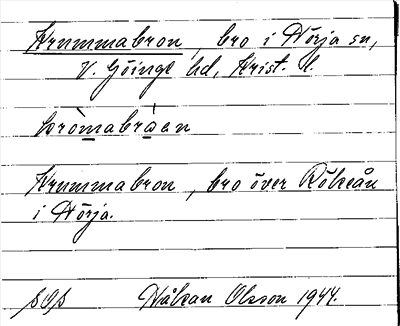 Krummabron, bro i Nörja sn,
V. Göinge hd, Krist. l.
kròmabràen
Krummabron, bro över Rökeån
i Nörja.
Håkan Olsson 1944.